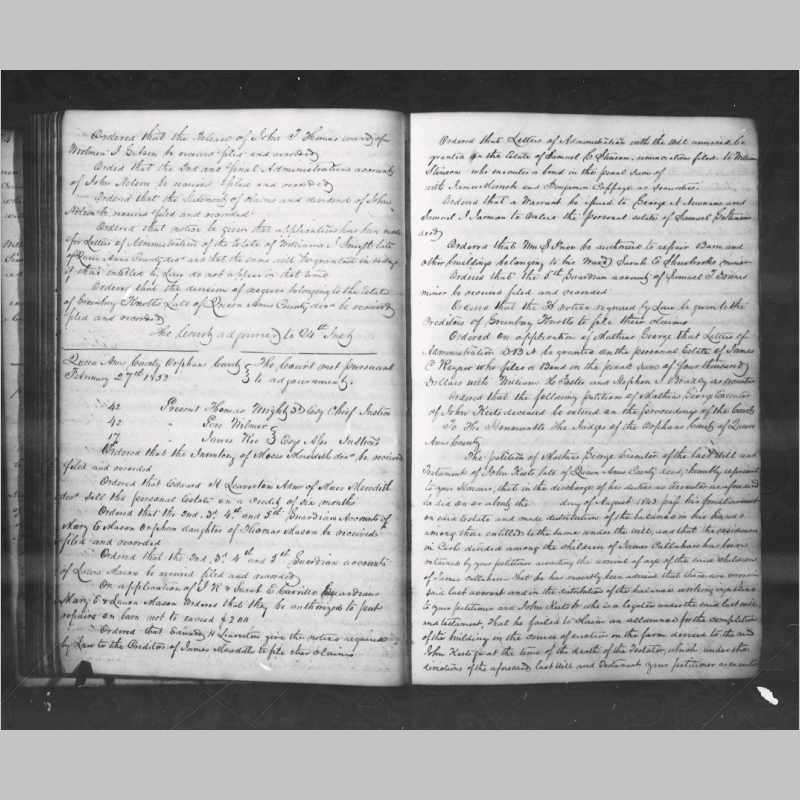 Ordered that the Release of John T Thomas ward of
Woolman J Gibson be received filed and recorded
Ordered that the 2nd and final Administration account
of John Nelson be received filed and recorded
Ordered that the Statement of claims and dividend of John
Nelson be received filed and recorded
Ordered that notice be given that application has been made
for Letters of Administration of the Estate of William late
of Queen Anns County decd and that the same will be granted in
if those entitled by Law do not appear in that time
Ordered that the division of negroes belonging to the Estate
of Greenbury late of Queen Anns County decd be received
filed and recorded
The Court adjourned to 24th Inst
Queen Anns County Orphans Court The Court met pursuant
February 27th 1852 to adjournment.
42 Present Thomas Wright 3d Esq Chief Justice
42 " Pere Wilmer
17 " James Esqr Asso Justices
Ordered that the Inventory of Moses Meredith decd be received
filed and recorded
Ordered that Edward H Leaverton Admr of Moses Meredith
decd sell the personal Estate on a Credit of six months
Ordered that the 2nd. 3d. 4th and 5th Guardian Accounts of
Mary E Mason orphan daughter of Thomas Mason be received
filed and recorded
Ordered that the 2nd. 3d. 4th and 5th Guardian accounts
of Laura Mason be received filed and recorded
On application of J K & Sarah E Guardians
Mary E & Laura Mason Ordered that they be authorized to put
repairs on barn not to exceed $200
Ordered that Edward H Leaverton give the notice required
by Law to the Creditors of Meredith to file their claims
Ordered that Letters of Administration with the will annexed be
granted on the Estate of Samuel C Stinson, renunciation filed. to William
Stinson who executes a bond in the penal sum of
with James and Benjamin as securities
Ordered that a Warrant be issued to George N Newnam and
Samuel T Jarman to value the personal estate of Samuel Stinson
decd
Ordered that Wm S be authorized to repair Barn and
other buildings belonging to his Ward Sarah C minor
Ordered that the 5th Guardian account of Samuel T
minor be received filed and recorded
Ordered that the notice required by Law be given to the
Creditors of Greenbury to file their claims
Ordered on application of Mathew George that Letters of
Administration D B N be granted on the personal Estate of James
C who files a Bond in the penal sum of four thousand
Dollars with William H and Stephen J Bradley as securities
Ordered that the following petition of Mathew George Executor
of John deceased be entered on the proceedings of the Court
To The Honourable the Judges of the Orphans Court of Queen
Anns County
The petition of Mathew George Executor of the last Will and
Testament of John late of Queen Anns County decd, humbly represents
to your Honours, that in the discharge of his duties as Executor as aforesaid
he did on or about the day of August 1843 pass his final account
on said Estate and made distribution of the balance in his hands
among those entitled to the same under the will, and that the residuum
in Cash divided among the children of James Callahan has been
retained by your petitioner awaiting the arrival of age of the said children
of James Callahan. That he has recently been advised that there was error in
said last account and in the distribution of the balance working injustice
to your petitioner and John who is a legatee under the said last will
and testament, that he failed to claim an allowance for the completion
of the building in the course of erection on the farm devised to the said
John at the time of the death of the Testator, which under the
directions of the aforesaid last Will and Testament your petitioner as executor